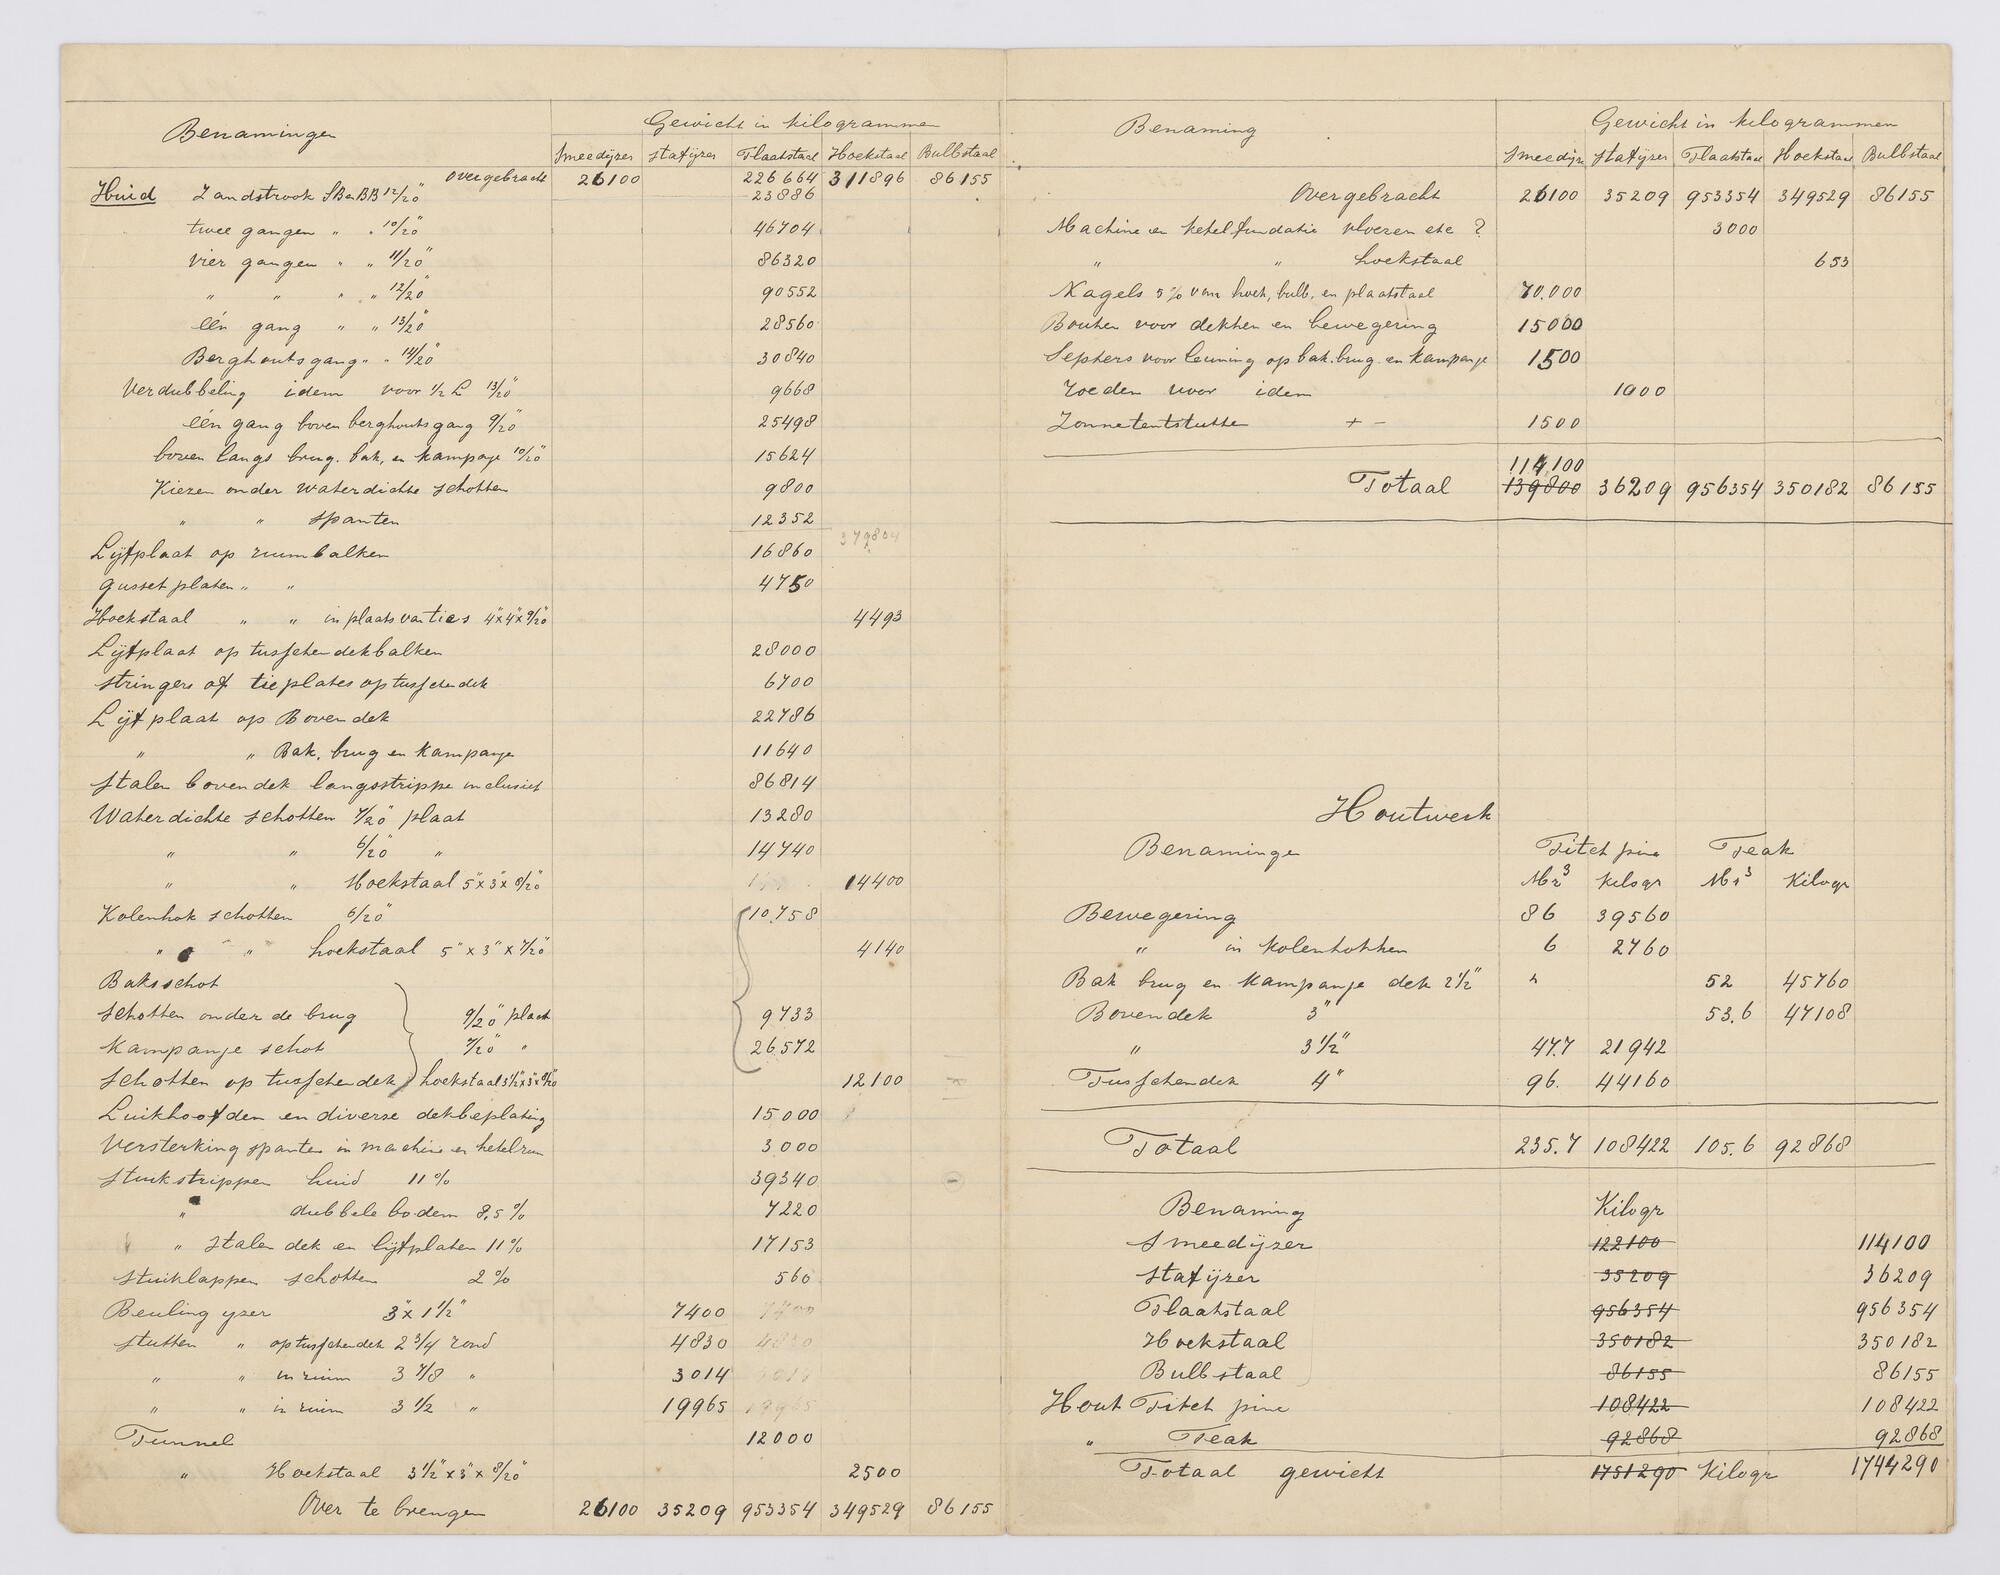 Benamingen Gewicht in kilogrammen
Smeedijzer stafijzer Plaatstaal Hoekstaal Bulbstaal
overgebracht 26100 226664 311896 86155
Huid Zandstrook SB en BB 12/20" 23886
twee gangen " " 10/20" 46704
vier gangen " " 11/20" 86320
" " " " 12/20" 90552
één gang " " 13/20" 28560
Berghoutsgang " " 14/20" 30840
Verdubbeling idem voor 1/2 L 13/20" 9668
één gang boven berghoutsgang 9/20" 25498
boven langs brug. bak, en kampanje 10/20" 15624
Kiezen onder waterdichte schotten 9800
" " spanten 12352
379804
Lijfplaat op ruimbalken 16860
gusset platen " " 4750
Hoekstaal " " in plaats van ties 4"x4"x9/20" 4493
Lijfplaat op tusschendekbalken 28000
stringers of tieplates op tusschendek 6700
Lijfplaat op Bovendek 22786
" " Bak, brug en kampanje 11640
Stalen bovendek langsstrippe inclusief 86814
Waterdichte schotten 7/20" plaat 13280
" " 6/20" " 14740
" " Hoekstaal 5"x3"x8/20" 14400
Kolenhok schotten 6/20" 10.758
" " hoekstaal 5"x3"x7/20" 4140
Bakschot
Schotten onder de brug 9/20" plaat 9733
Kampanje schot 7/20" " 26.572
Schotten op tusschendek hoekstaal 3½"x3"x8/20" 12100
Luikhoofden en diverse dekbeplating 15000
Versterking spanten in machine en ketelrum 3000
Stuikstrippen huid 11% 39340
" dubbele bodem 8,5% 7220
" stalen dek en lijfplaten 11% 17153
Stuiklappen schotten 2% 560
Beuling yzer 3"x1½" 7400 7400
Stutten " op tusschendek 2 3/4 rond 4830 4830
" " in ruim 3 7/8 " 3014 3014
" " in ruim 3 1/2 " 19965 19965
Tunnel 12000
" Hoekstaal 3½"x3"x8/20" 2500
Over te brengen 26100 35209 953354 349529 86155
Benaming Gewicht in kilogrammen
Smeedijzer stafijzer Plaatstaal Hoekstaal Bulbstaal
Overgebracht 26100 35209 953354 349529 86155
Machine en ketelfundatie vloeren etc ? 3000
" " hoekstaal 653
Nagels 5% van hoek, bulb, en plaatstaal 70.000
Bouten voor dekken en bewegering 15000
Septers voor leuning op bak. brug. en kampanje 1500
Roeden voor idem 1000
Zonnetentstutten + - 1500
114,100
Totaal 139800 36209 956354 350182 86155
Houtwerk
Benamingen Pitch pine Teak
Mr3 kilogr Mr3 Kilogr
Bewegering 86 39560
" in kolenhokken 6 2760
Bak brug en kampanje dek 2½" " 52 45760
Bovendek 3" 53.6 47108
" 3½" 47.7 21942
Tusschendek 4" 96. 44160
Totaal 235.7 108422 105.6 92868
Benaming Kilogr
Smeedijzer 122100 114100
Stafijzer 35209 36209
Plaatstaal 956354 956354
Hoekstaal 350182 350182
Bulbstaal 86155 86155
Hout Pitch pine 108422 108422
" Teak 92868 92868
Totaal gewicht 1751290 Kilogr 1744290